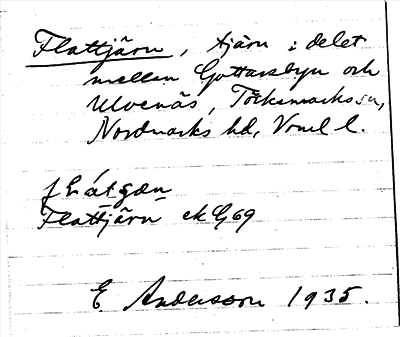 Flattjärn, tjärn i delet
mellan Gottarsbyn och
Ulvenäs, Töcksmarks sn,
Nordmarks hd, Vrml l.
Flattjärn ek G69
E. Andersson 1935.